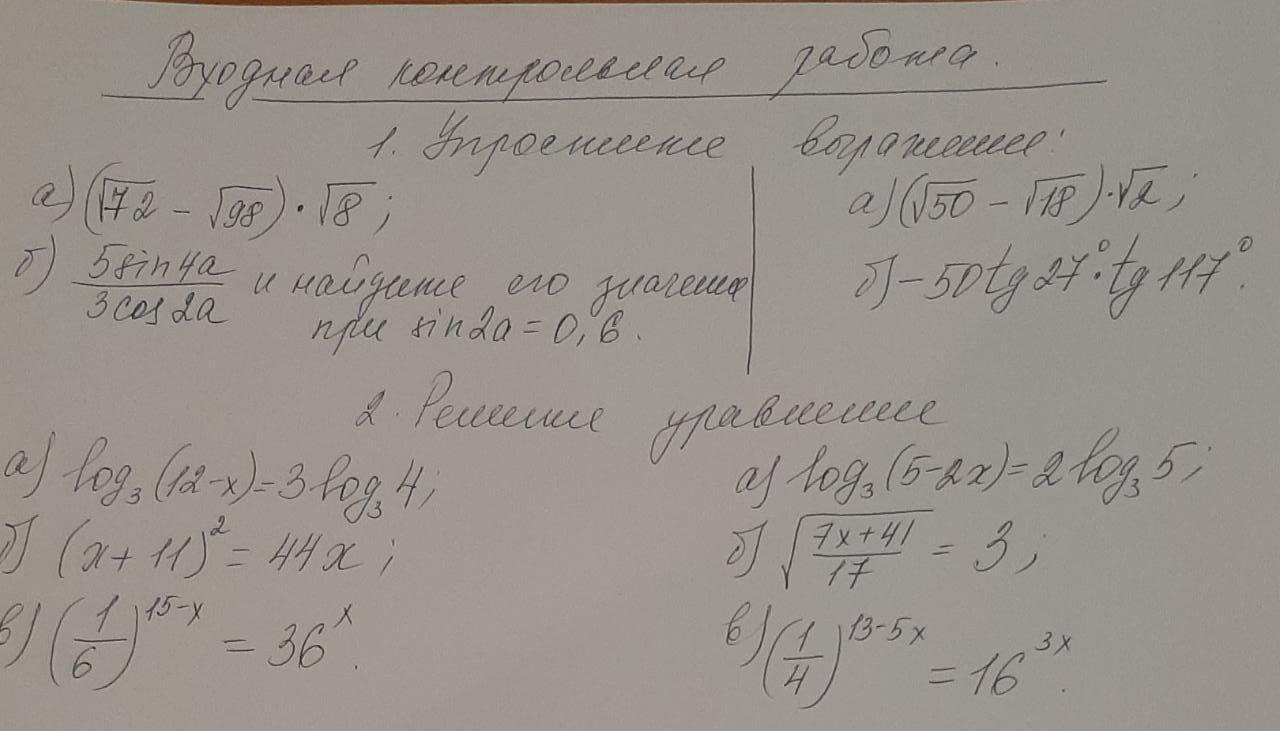 Входная контрольная работа.
1. Упростите выражение:
а) (√72 - √98) · √8;
б) 5sin4a / 3cos2a и найдите его значение
при sin2a = 0,6.
а) (√50 - √18) · √2;
б) -50tg27° · tg117°.
2. Решите уравнение
а) log₃(12-x) = 3log₃4;
б) (x + 11)² = 44x;
в) (1/6)^(15-x) = 36^x.
а) log₃(5-2x) = 2log₃5;
б) √((7x+41)/17) = 3;
в) (1/4)^(13-5x) = 16^(3x).